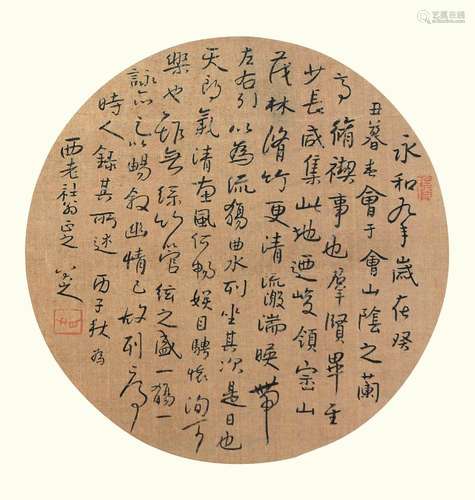 永和九年歲在癸
丑暮春會于會山陰之蘭
亭脩禊事也群賢畢至
少長咸集此地迺峻領崇山
茂林脩竹更清流激湍暎帶
左右引以為流觴曲水列坐其次是日也
天朗氣清惠風和暢娛目騁懷洵可
樂也雖無絲竹管絃之盛一觴一
詠亦足以暢敘幽情已故列序
時人錄其所述 丙子秋為
西老社翁正之 八大
艺藏在线
artfoxlive.com